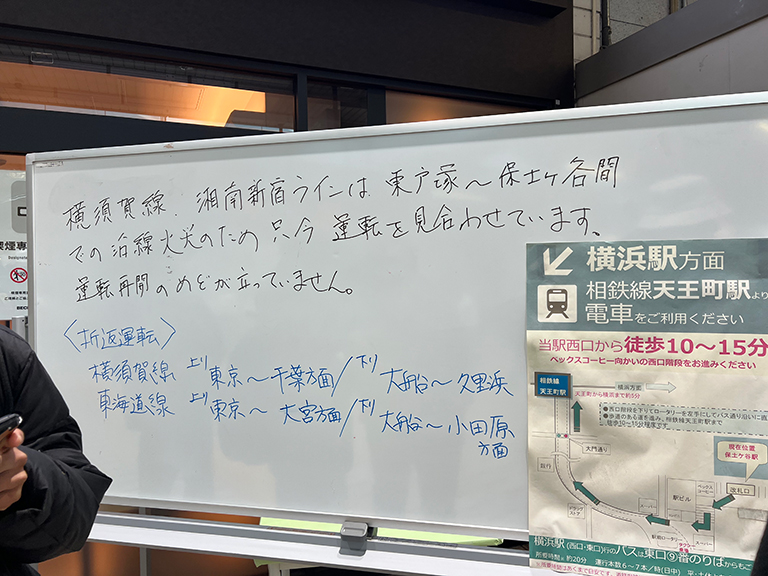 横須賀線、湘南新宿ラインは 東戸塚～保土ヶ谷間
での沿線火災のため只今 運転を見合わせています。
運転再開のめどが立っていません。
〈折返運転〉
横須賀線 上り東京～千葉方面/下り 大船～久里浜
東海道線 上り東京～大宮方面/下り 大船～小田原
方面
横浜駅方面
相鉄線天王町駅より
電車をご利用ください
当駅西口から徒歩10～15分
ベックスコーヒー向かいの西口階段をお進みください
相鉄線
天王町駅
横浜方面
天王町から横浜まで約5分
大門通り
銀行
現在位置
保土ケ谷駅
駅ビル
ベックス
コーヒー
改札口
スーパー
駅前ロータリー
タクシー
乗場
横浜駅(西口・東口)行のバスは東口⑨番のりば
所要時間 約20分 運行本数6～7本/時(日中)